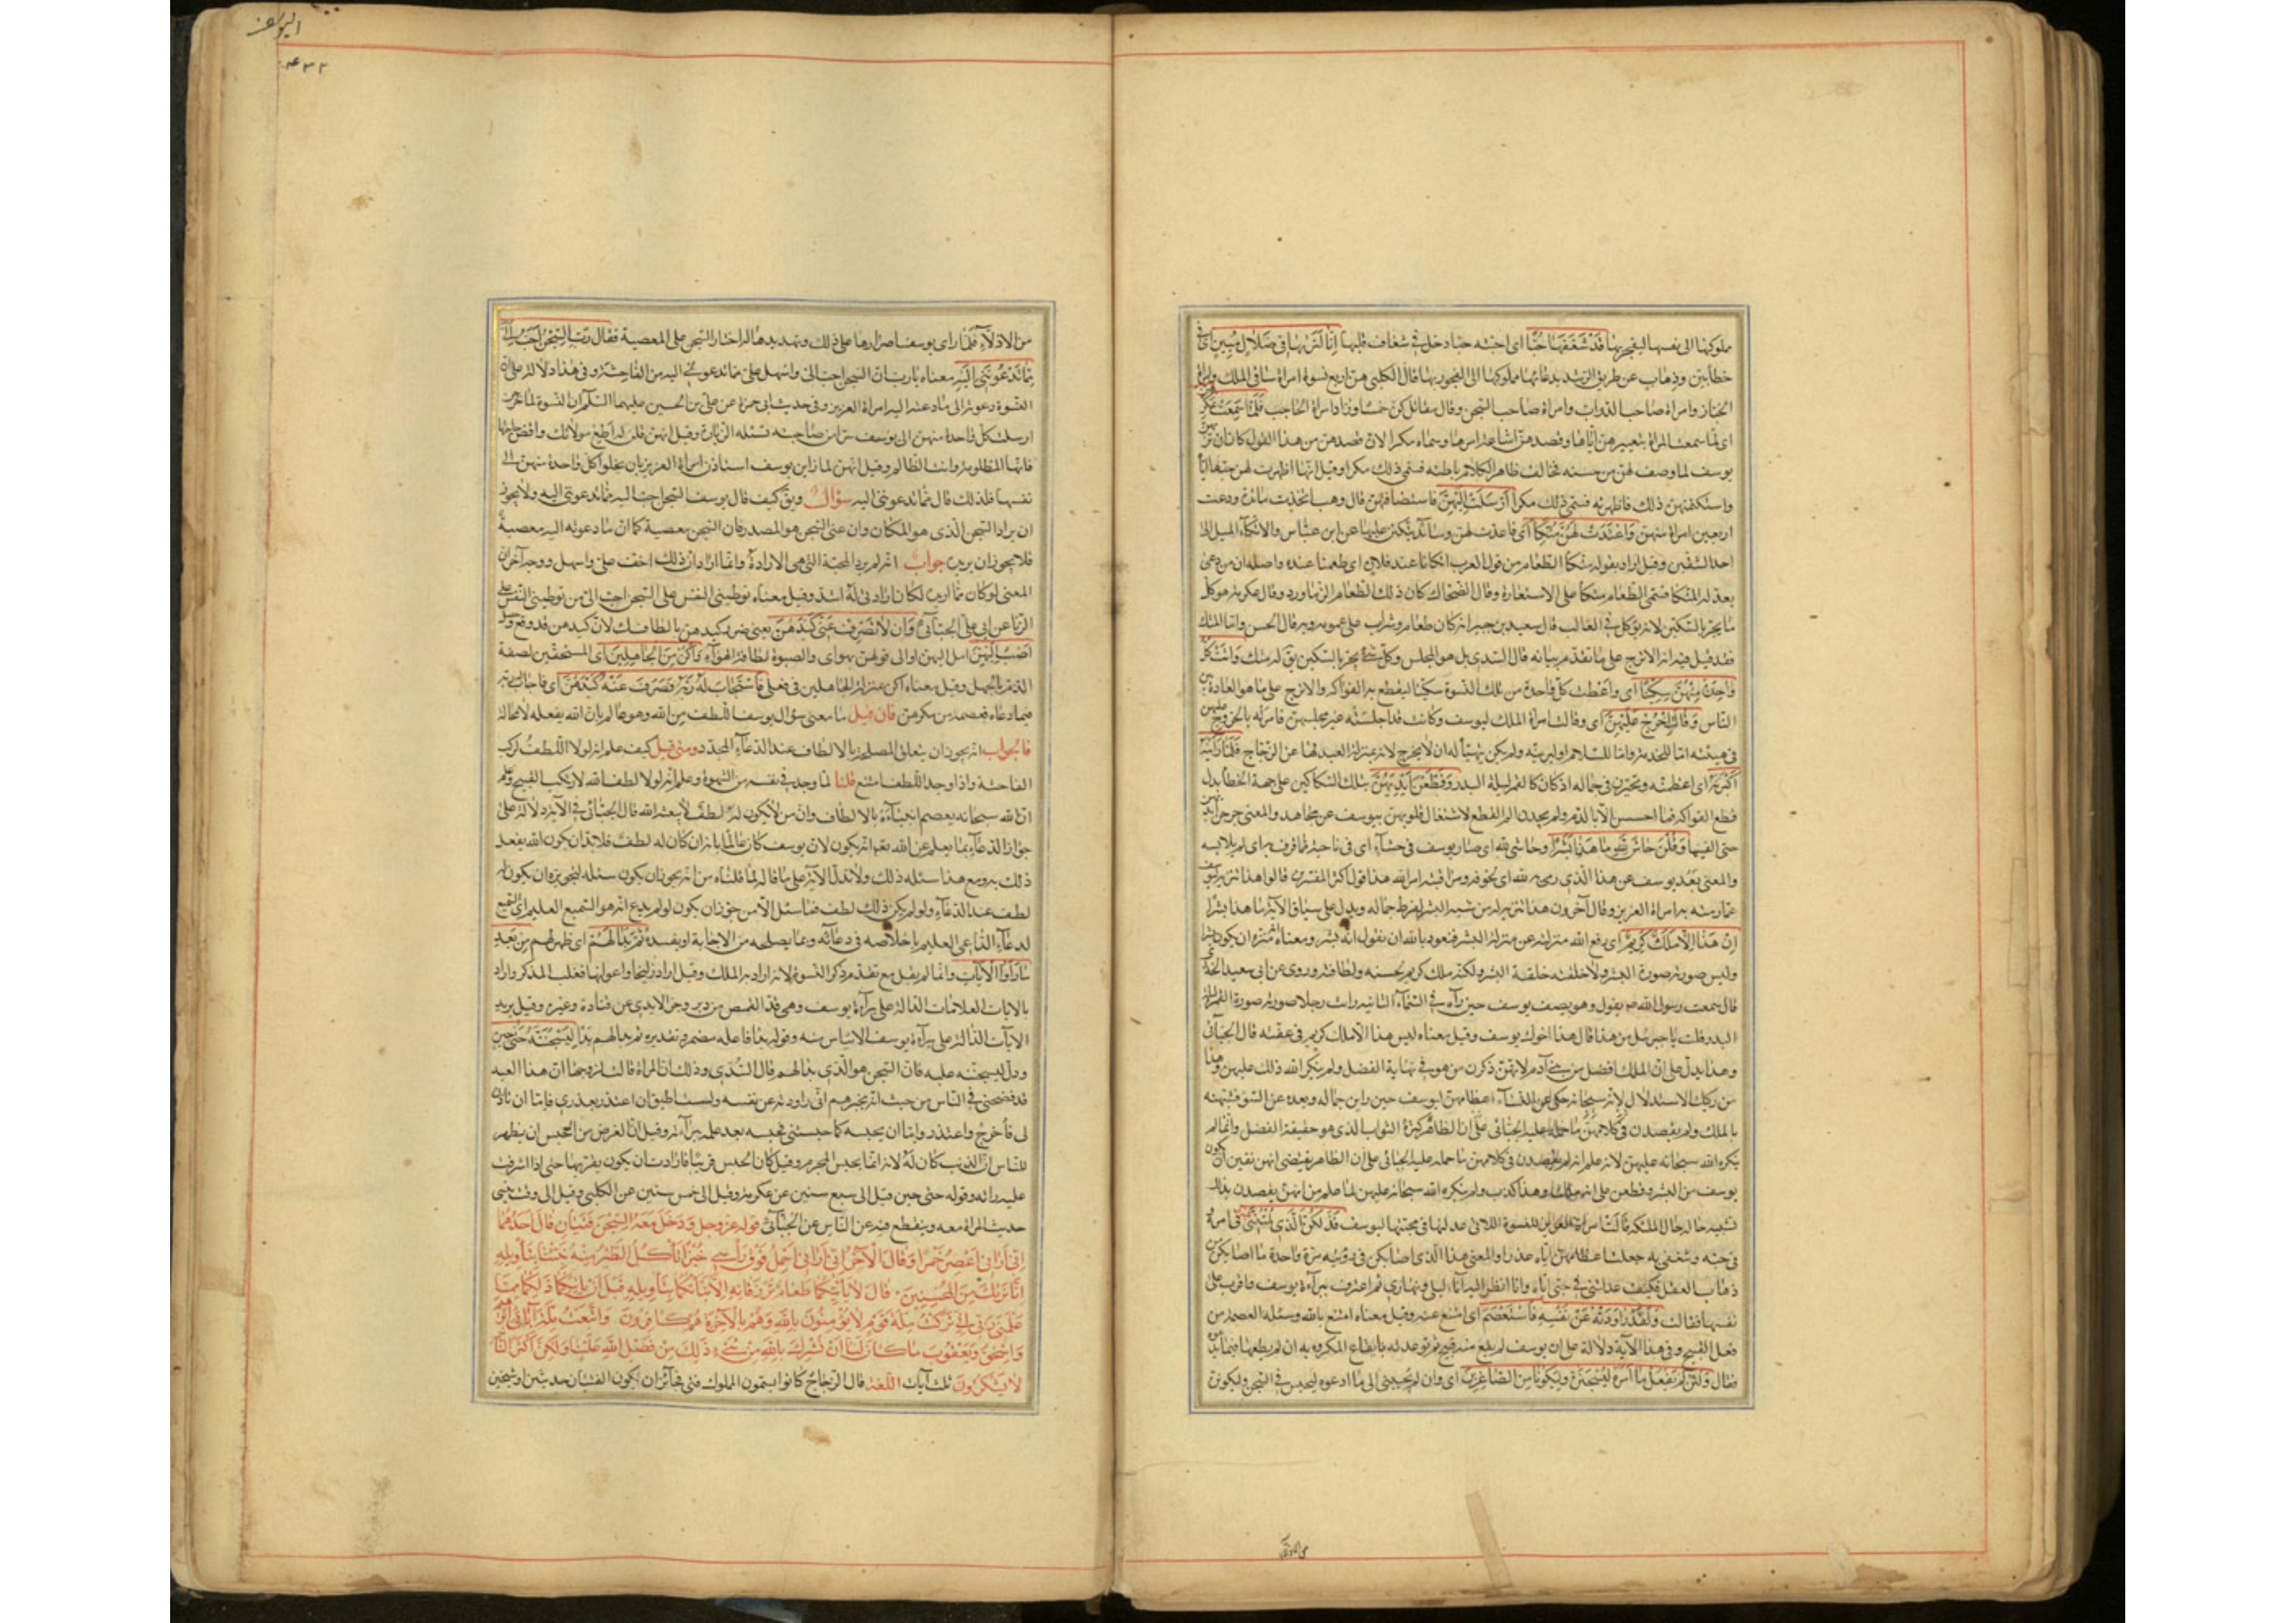 مملوكها الى نفسها ليفجر بها قَدْ شَغَفَهَا حُبًّا اى احبته حبا دخل فى شغاف قلبها اِنَّا لَنَرٰيهَا فى ضَلاٰلٍ مُبِينٍ اى فى
خطأ بين وذهاب عن طريق الرشد بدعائها مملوكها الى الفجور بها قال الكلبى هن اربع نسوة امراة ساقى الملك وامراة
الخباز وامراة صاحب الدواب وامراة صاحب السجن وقال مقاتل كن خمسا وزاد امراة الحاجب فَلَمّٰا سَمِعَتْ بِمَكْرِهِنَّ
اى لما سمعت المراة بتعييرهن اياها وقصدهن اشاعة امرها وسماه مكرا لان قصدهن من هذا القول كان ان تريهن
يوسف لما وصف لهن من حسنه فخالف ظاهر الكلام باطنه فسمى ذلك مكرا وقيل انها اظهرت لهن حبها اياه
واستكتمتهن ذلك فاظهرنه فسمى ذلك مكرا اَرْسَلَتْ اِلَيْهِنَّ فاستضافتهن قال وهب اتخذت مائدة ودعت
اربعين امراة منهن وَاَعْتَدَتْ لَهُنَّ مُتَّكَأً اى فاعدت لهن وسائد يتكئن عليها عن ابن عباس والاتكاء الميل الى
احد الشقين وقيل اراد بقوله متكأ الطعام من قول العرب اتكأنا عند فلان اى طعمنا عنده واصله ان من دعى
يعد له المتكأ فسمى الطعام متكأ على الاستعارة وقال الضحاك كان ذلك الطعام الزماورد وقال عكرمة هو كل
ما يحز بالسكين لانه يؤكل فى الغالب قال سعيد بن جبير انه كان طعام وشراب على عمومه وبه قال الحسن واما المتك
فقد قيل فيه انه الاترج على ما تقدم بيانه قال السدى بل هو المجلس وكل شئ يحز بالسكين يق له متك وَاٰتَتْ كُلَّ
وٰاحِدَةٍ مِنْهُنَّ سِكِّينًا اى واعطت كل واحدة من تلك النسوة سكينا ليقطع به الفواكه والاترج على ما هو العادة بين
الناس وَقٰالَتِ اخْرُجْ عَلَيْهِنَّ اى وقالت امراة الملك ليوسف وكانت قد اجلسته غير مجلسهن فامرته بالخروج عليهن
فى هيئته اما للخدمة واما للسلام او ليرينه ولم يكن يتهيأ له ان لا يخرج لانه بمنزلة العبد لها عن الزجاج فَلَمّٰا رَاَيْنَهُ
اَكْبَرْنَهُ اى اعظمنه وتحيرن فى جماله اذ كان كالقمر ليلة البدر وَقَطَّعْنَ اَيْدِيَهُنَّ بتلك السكاكين على جهة الخطأ بدل
قطع الفواكه فما احسسن الا بالدم ولم يجدن الم القطع لاشتغال قلوبهن بيوسف عن مجاهد والمعنى جرحن ايديهن
حتى القينها وَقُلْنَ حٰاشَ لِلّٰهِ مٰا هٰذٰا بَشَرًا وحاشى لله اى صار يوسف فى حشاء اى فى ناحية مما قرف به اى لم يلابسه
والمعنى بَعُدَ يوسف عن هذا الذى رمى به لله اى لخوفه ومراقبته امر الله هذا قول اكثر المفسرين قالوا هذا تنزيه ليوسف
عما رمته به امراة العزيز وقال آخرون هذا تنزيه له من شبه البشر لفرط جماله ويدل على سياق الآية ما هذا بشرا
اِنْ هٰذٰا اِلّٰا مَلَكٌ كَرِيمٌ اى رفع الله منزلته عن منزلة البشر فنعوذ بالله ان نقول انه بشر ومعناه انه منزه ان يكون بشرا
وليس صورته صورة البشر ولا خلقته خلقة البشر ولكنه ملك كريم لحسنه ولطافته وروى عن ابى سعيد الخدرى
قال سمعت رسول الله ص يقول وهو يصف يوسف حين رآه فى السماء الثانية رايت رجلا صورته صورة القمر ليلة
البدر قلت يا جبرئيل من هذا قال هذا اخوك يوسف وقيل معناه ليس هذا الا ملك كريم فى عفته قال الجبائى
وهذا يدل على ان الملك افضل من بنى آدم لانهن ذكرن من هو فى نهاية الفضل ولم ينكر الله ذلك عليهن وهذا
من ركيك الاستدلال لانه سبحانه حكى عن النساء اعظامهن ليوسف حين راين جماله وبعده عن السوء فشبهنه
بالملك ولم يقصدن فى كلامهن ما حمله عليه الجبائى على ان الظاهر كثرة الثواب الذى هو حقيقة الفضل وانما لم
ينكره الله سبحانه عليهن لانه علم انه لم يقصدن فى كلامهن ما حمله عليه الجبائى على ان الظاهر يقتضى انهن نفين ان يكون
يوسف من البشر وقطعن على انه ملك وهذا كذب ولم ينكره الله سبحانه عليهن لما علم من انهن يقصدن بذلك
تشبيه حاله بحال الملئكة قٰالَتْ امراة العزيز للنسوة اللاتى عذلنها فى محبتها ليوسف فَذٰلِكُنَّ الَّذِى لُمْتُنَّنِى فيه اى فى امره
فى حبه وشغفى به جعلت اعظامهن اياه عذرا والمعنى هذا الذى اصابكن فى رؤيته مرة واحدة ما اصابكن من
ذهاب العقل فكيف عذلتننى فى حبى اياه وانا انظر اليه آناء ليلى ونهارى ثم اعترفت ببراءة يوسف واقرت على
نفسها فقالت وَلَقَدْ رٰاوَدْتُهُ عَنْ نَفْسِهِ فَاسْتَعْصَمَ اى امتنع عنه وقيل معناه امتنع بالله وسئله العصمة من
فعل القبيح وفى هذا الآية دلالة على ان يوسف لم يقع منه قبيح ثم توعدته بايقاع المكروه به ان لم يطعها فيما تدعوه
فقال وَلَئِنْ لَمْ يَفْعَلْ مٰا اٰمُرُهُ لَيُسْجَنَنَّ وليَكُونًا مِنَ الصّٰاغِرِينَ اى وان لم يجبنى الى ما ادعوه ليحبس فى السجن وليكونن
من الاذلاء
اليوسف
٤٣٢
من الاذلاء فلما راى يوسف اصرارها على ذلك وتهديدها له اختار السجن على المعصية فقال رَبِّ السِّجْنُ اَحَبُّ اِلَىَّ
مِمّٰا يَدْعُونَنِى اِلَيْهِ معناه يا رب ان السجن احب الى واسهل على مما يدعوننى اليه من الفاحشة وفى هذا دلالة على ان
النسوة دعونه الى ما دعته اليه امراة العزيز وفى حديث ابى حمزة عن على بن الحسين عليهما السلم ان النسوة لما خرجن
ارسلت كل واحدة منهن الى يوسف سرا من صاحبته تسئله الزيارة وقيل انهن قلن له اطع مولاتك واقض حاجتها
فانها المظلومة وانت الظالم وقيل انهن لما راين يوسف استاذن امراة العزيز بان يخلو كل واحدة منهن الى
نفسها فلذلك قال مما يدعوننى اليه سؤال ويق كيف قال يوسف السجن احب الى مما يدعوننى اليه ولا يجوز
ان يراد السجن الذى هو المكان وان عنى السجن هو المصدر فان السجن معصية كما ان ما دعونه اليه معصية
فلا يجوز ان يريده جواب انه لم يرد المحبة التى هى الارادة وانما اراد ان ذلك اخف على واسهل ووجه آخر ان
المعنى لو كان مما اريد لكان ارادتى له اشد وقيل معناه توطينى النفس على السجن احب الى من توطينى النفس على
الزنا عن ابى على الجبائى وَاِنْ لاٰ تَصْرِفْ عَنِّى كَيْدَهُنَّ يعنى ضرر كيدهن بالطافك لان كيدهن قد وقع وحصل
اَصْبُ اِلَيْهِنَّ امل اليهن او الى قولهن بهواى والصبوة لطافة الهواء وَاَكُنْ مِنَ الْجٰاهِلِينَ اى المستحقين لصفة
الذم بالجهل وقيل معناه اكن بمنزلة الجاهلين فى فعلى فَاسْتَجٰابَ لَهُ رَبُّهُ فَصَرَفَ عَنْهُ كَيْدَهُنَّ اى فاجاب له ربه
فيما دعاه فعصمه من مكرهن فان قيل ما معنى سؤال يوسف اللطف من الله وهو عالم بان الله يفعله لا محالة
فالجواب انه يجوز ان يتعلق المصلحة بالالطاف عند الدعاء المجدد ومتى قيل كيف علم انه لولا اللطف لركب
الفاحشة واذا وجد اللطف امتنع قلنا لما وجد فى نفسه من الشهوة وعلم انه لولا لطف الله لارتكب القبيح وعلم
ان الله سبحانه يعصم انبياءه بالالطاف وان من لا يكون له لطف لا يبعثه الله قال الجبائى فى الآية دلالة على
جواز الدعاء بما يعلم عن الله نعم انه يكون لان يوسف كان عالما بانه ان كان له لطف فلا بد ان يكون الله يفعل
ذلك به ومع هذا سئله ذلك ولا يدل الآية على ما قاله لما قلناه من انه يجوز ان يكون سئله لتجويزه ان يكون له
لطف عند الدعاء ولو لم يكن ذلك لطف فما سئل الا من جوز ان يكون لو لم يدع انه هو السميع العليم اى السميع
لدعاء الداعى العليم باخلاصه فى دعائه وبما يصلحه من الاجابة او يفسده ثُمَّ بَدٰا لَهُمْ اى ظهر لهم مِنْ بَعْدِ
مٰا رَاَوُا الْاٰيٰاتِ وانما لم يقل مع تقدم ذكر النسوة لانه اراد به الملك وقيل اراد زليخا واعوانها فغلب المذكر واراد
بالآيات العلامات الدالة على براءة يوسف وهى قد القميص من دبر وحز الايدى عن قتادة وغيره وقيل يريد
الآيات الدالة على براءة يوسف الاياس منه وقوله بدا فاعله مضمر وتقديره ثم بدا لهم بدا لَيَسْجُنُنَّهُ حَتّٰى حِينٍ
ودل ليسجننه عليه فان السجن هو الذى بدا لهم قال السدى وذلك ان المراة قالت لزوجها ان هذا العبد
قد فضحنى فى الناس من حيث انه يخبرهم انى راودته عن نفسه ولست اطيق ان اعتذر بعذرى فاما ان تاذن
لى فاخرج واعتذر واما ان يحبسه كما حبستنى فحبسه بعد علمه ببراءته وقيل ان الغرض من الحبس ان يظهر
للناس ان الذنب كان له لانه انما يحبس المجرم وقيل كان الحبس قريبا فارادت ان يكون بقربها حتى اذا اشرفت
عليه راته وقوله حتى حين قيل الى سبع سنين عن عكرمة وقيل الى خمس سنين عن الكلبى وقيل الى وقت ينسى
حديث المراة معه وينقطع فيه عن الناس عن الجبائى قوله عز وجل وَدَخَلَ مَعَهُ السِّجْنَ فَتَيٰانِ قٰالَ اَحَدُهُمٰا
اِنِّى اَرٰانِى اَعْصِرُ خَمْرًا وَقٰالَ الْاٰخَرُ اِنِّى اَرٰانِى اَحْمِلُ فَوْقَ رَأْسِى خُبْزًا تَأْكُلُ الطَّيْرُ مِنْهُ نَبِّئْنٰا بِتَأْوِيلِهِ
اِنّٰا نَرٰيكَ مِنَ الْمُحْسِنِينَ · قٰالَ لاٰ يَأْتِيكُمٰا طَعٰامٌ تُرْزَقٰانِهِ اِلّٰا نَبَّأْتُكُمٰا بِتَأْوِيلِهِ قَبْلَ اَنْ يَأْتِيَكُمٰا ذٰلِكُمٰا مِمّٰا
عَلَّمَنِى رَبِّى اِنِّى تَرَكْتُ مِلَّةَ قَوْمٍ لاٰ يُؤْمِنُونَ بِاللّٰهِ وَهُمْ بِالْاٰخِرَةِ هُمْ كٰافِرُونَ وَاتَّبَعْتُ مِلَّةَ اٰبٰائِى اِبْرٰهِيمَ
وَاِسْحٰقَ وَيَعْقُوبَ مٰا كٰانَ لَنٰا اَنْ نُشْرِكَ بِاللّٰهِ مِنْ شَىْءٍ ذٰلِكَ مِنْ فَضْلِ اللّٰهِ عَلَيْنٰا وَلٰكِنَّ اَكْثَرَ النّٰاسِ
لاٰ يَشْكُرُونَ ثلث آيات اللّغة قال الزجاج كانوا يسمون المملوك فتى فجائز ان يكون الفتيان حدثين او شيخين